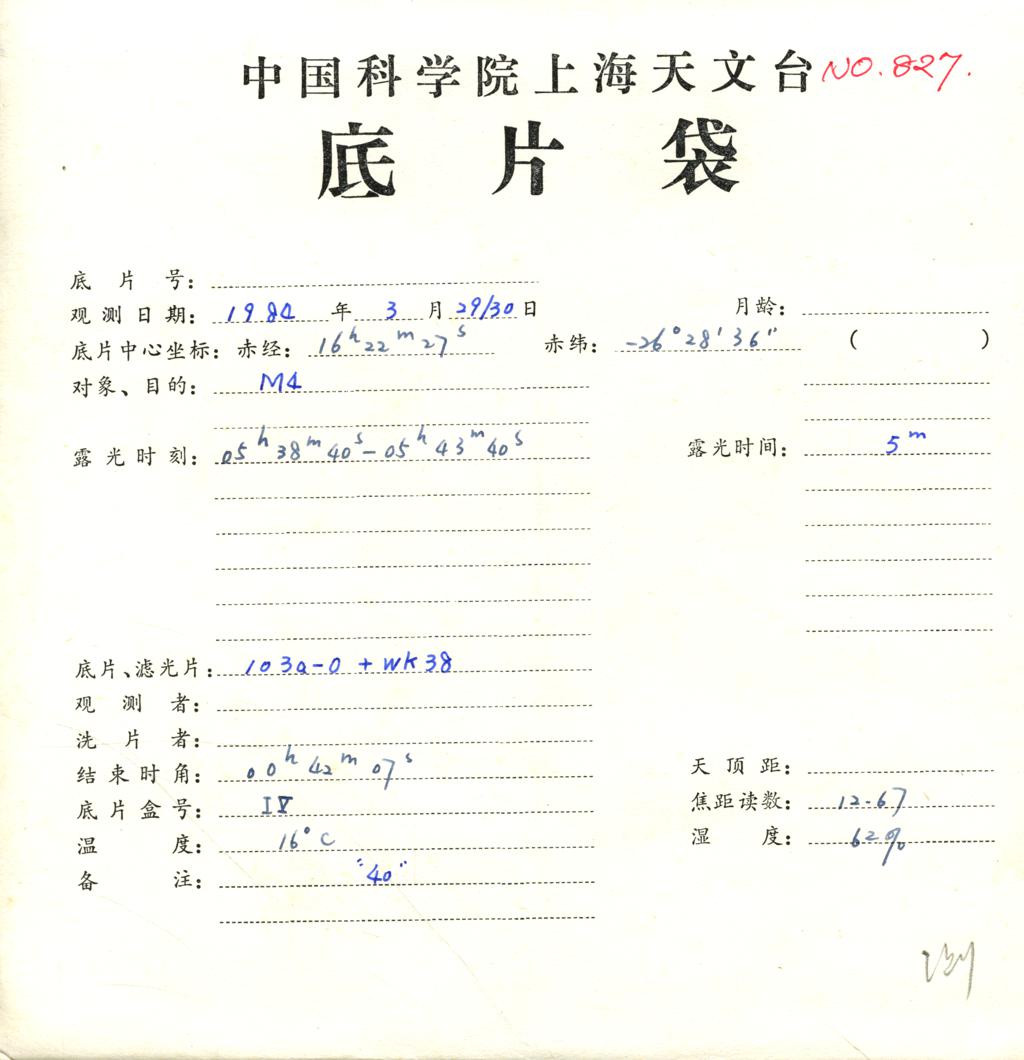 中国科学院上海天文台 NO.827.
底片袋
底片号：
观测日期：1984年3月29/30日 月龄：
底片中心坐标：赤经：16h22m27s 赤纬：-26°28'36" ( )
对象、目的：M4
露光时刻：05h38m40s-05h43m40s 露光时间：5m
底片、滤光片：103a-O + WK38
观测者：
洗片者：
结束时角：00h42m07s 天顶距：
底片盒号：IV 焦距读数：12.67
温度：16°C 湿度：62%
备注："40"